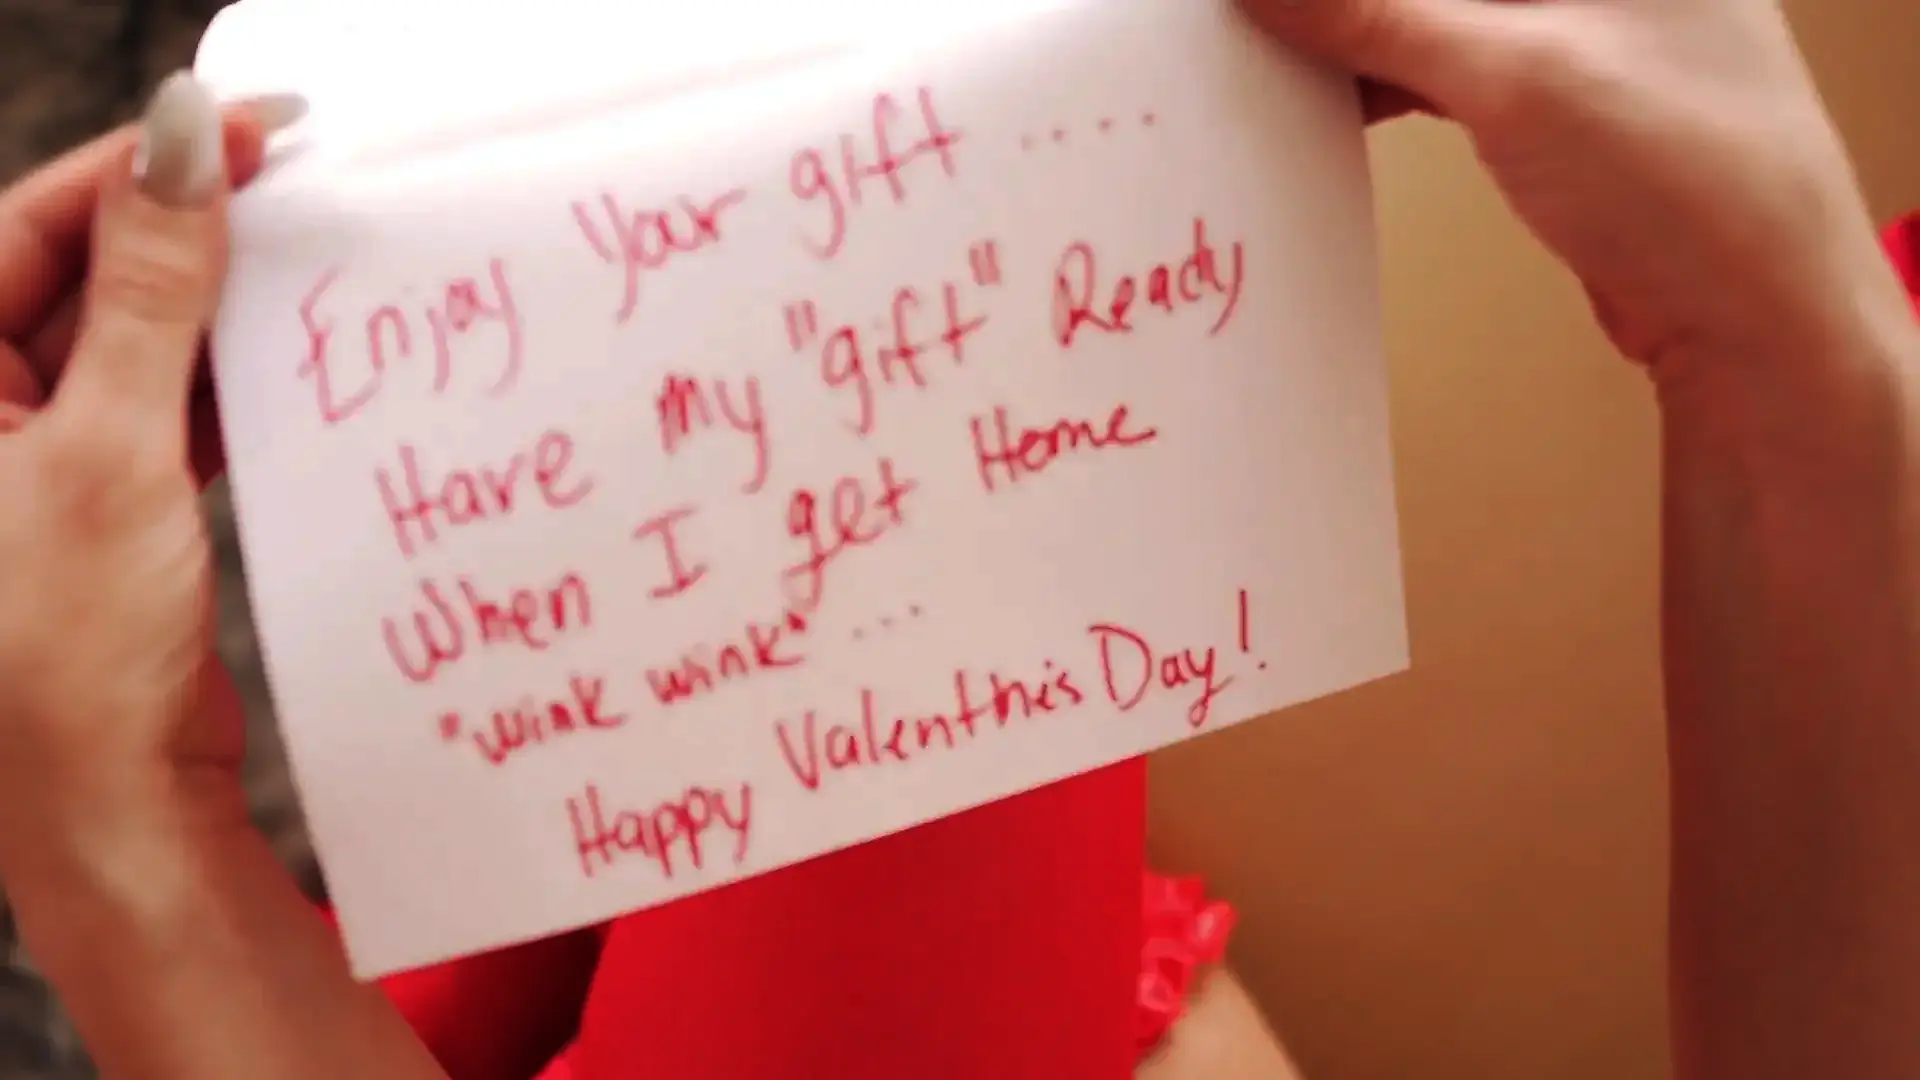 Enjoy Your gift ....
Have my "gift" Ready
When I get Home
"wink wink" ...
Happy Valentine's Day!